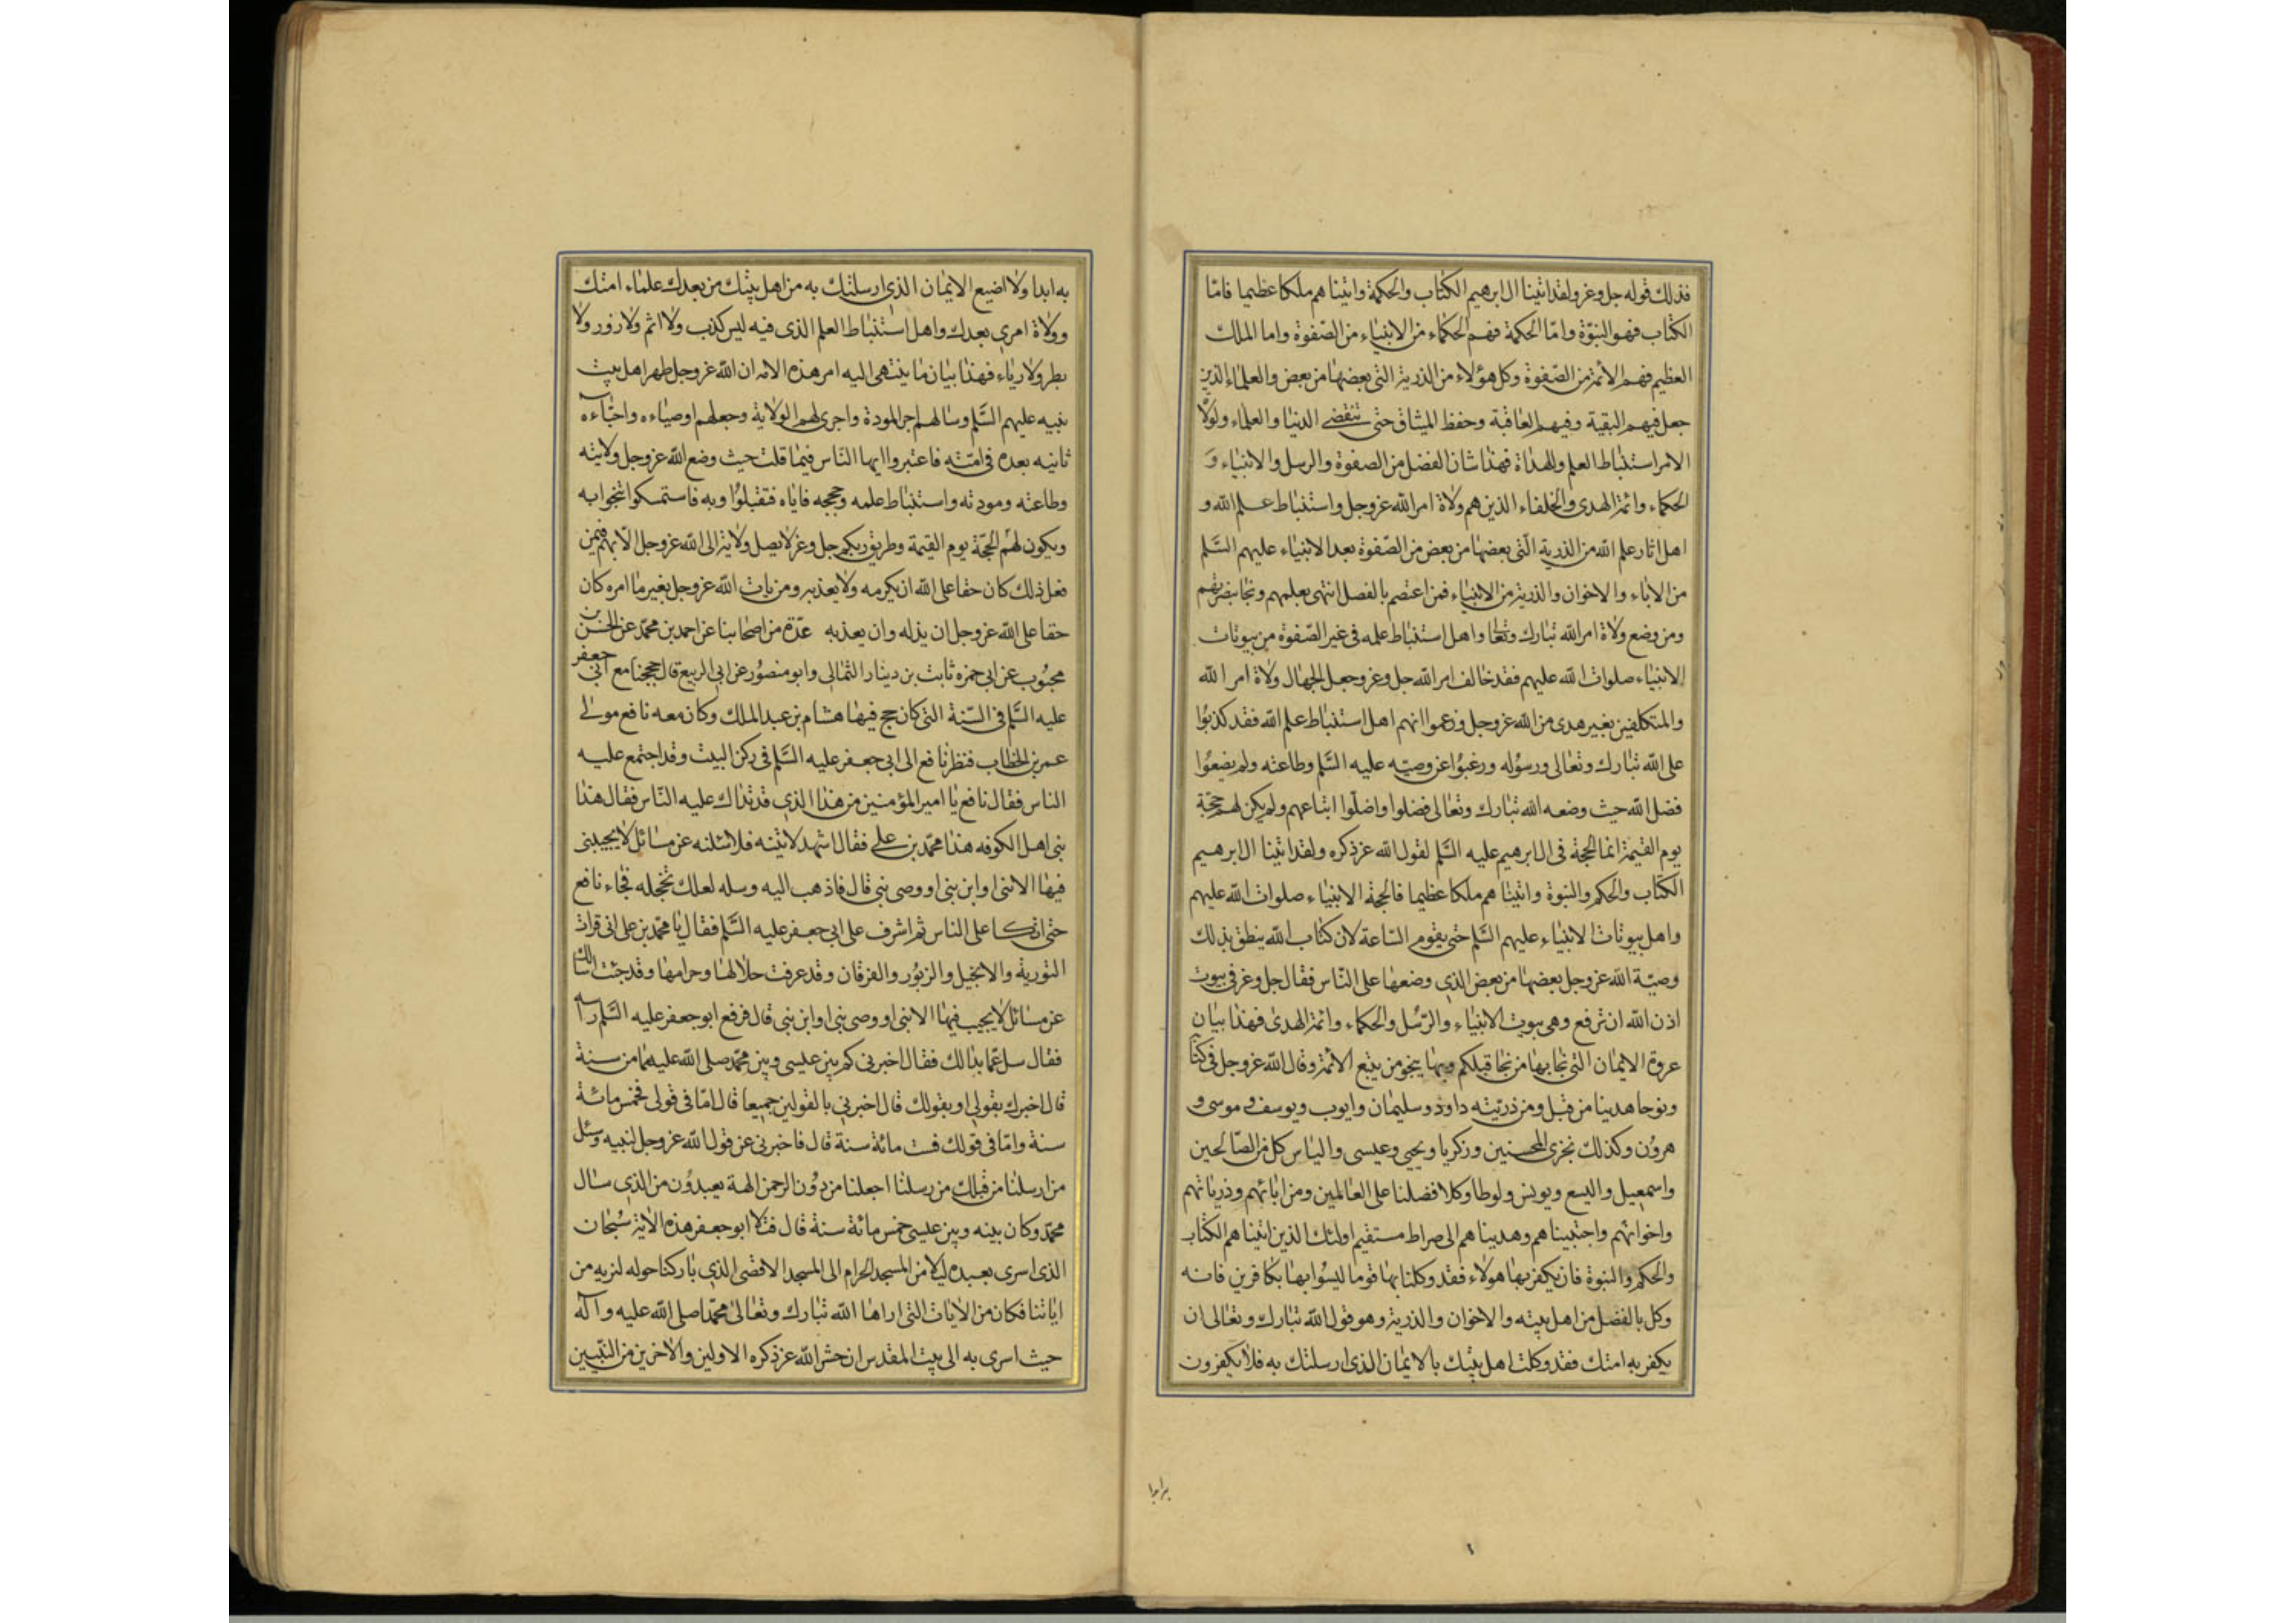 فذلك قوله جل وعز ولقد اتينا ال ابرهيم الكتاب والحكمة واتيناهم ملكا عظيما فامّا
الكتاب فهو النبوّة وامّا الحكمة فهم الحكماء من الانبياء من الصّفوة واما الملك
العظيم فهم الأئمة من الصّفوة وكل هؤلاء من الذرية التى بعضها من بعض والعلماء الذين
جعل فيهم البقية وفيهم العاقبة وحفظ الميثاق حتى تنقضى الدنيا والعلماء ولولاة
الامر استنباط العلم وللهداة فهذا شان الفضل من الصفوة والرسل والانبياء و
الحكماء وائمة الهدى والخلفاء الذين هم ولاة امر الله عز وجل واستنباط علم الله و
اهل اثار علم الله من الذرية الّتى بعضها من بعض من الصّفوة بعد الانبياء عليهم السّلم
من الاباء والاخوان والذرية من الانبياء فمن اعتصم بالفضل انتهى بعلمهم ونجا بنصرتهم
ومن وضع ولاة امر الله تبارك وتعالى واهل استنباط علمه فى غير الصّفوة من بيوتات
الانبياء صلوات الله عليهم فقد خالف امر الله جل وعز وجعل الجهال ولاة امر الله
والمتكلفين بغير هدى من الله عز وجل وزعموا انهم اهل استنباط علم الله فقد كذبوا
على الله تبارك وتعالى ورسوله ورغبوا عن وصيّه عليه السّلم وطاعته ولم يضعوا
فضل الله حيث وضعه الله تبارك وتعالى فضلوا واضلّوا اتباعهم ولم يكن لهم حجّة
يوم القيمة انما الحجة فى ال ابرهيم عليه السّلم لقول الله عز ذكره ولقد اتينا ال ابرهيم
الكتاب والحكم والنبوة واتيناهم ملكا عظيما فالحجة الانبياء صلوات الله عليهم
واهل بيوتات الانبياء عليهم السّلم حتى يقوم السّاعة لان كتاب الله ينطق بذلك
وصيّة الله عز وجل بعضها من بعض الذى وضعها على النّاس فقال جل وعز فى بيوت
اذن الله ان ترفع وهى بيوت الانبياء والرّسل والحكماء وائمة الهدى فهذا بيان
عروة الايمان التى نجا بها من نجا قبلكم وبها ينجو من يتبع الأئمة وقال الله عز وجل فى كتابه
ونوحا هدينا من قبل ومن ذريّته داود وسليمان وايوب ويوسف و موسى و
هرون وكذلك نجزى المحسنين وزكريا ويحيى وعيسى والياس كل من الصّالحين
واسمعيل واليسع ويونس ولوطا وكلا فضلنا على العالمين ومن ابائهم وذرياتهم
واخوانهم واجتبيناهم وهديناهم الى صراط مستقيم اولئك الذين اتيناهم الكتاب
والحكم والنبوة فان يكفر بها هؤلاء فقد وكلنا بها قوما ليسوا بها بكافرين فانه
وكل بالفضل من اهل بيته والاخوان والذرية وهو قول الله تبارك وتعالى ان
يكفر به امتك فقد وكلت اهل بيتك بالايمان الذى ارسلتك به فلا يكفرون
به ابدا ولا اضيع الايمان الذى ارسلتك به من اهل بيتك من بعدك علماء امتك
وولاة امرى بعدك واهل استنباط العلم الذى فيه ليس كذب ولا اثم ولا زور ولا
بطر ولا رياء فهذا بيان ما ينتهى اليه امر هذه الامه ان الله عز وجل طهر اهل بيت
نبيه عليهم السّلم وسالهم اجر المودة واجرى لهم الولاية وجعلهم اوصياءه واحبّاءه
ثابته بعده فى امّته فاعتبروا ايها النّاس فيما قلت حيث وضع الله عز وجل ولايته
وطاعته ومودته واستنباط علمه وحججه فاياه فتقبلوا وبه فاستمسكوا تنجوا به
ويكون لهم الحجّة يوم القيمة وطريق ربكم جل وعز لا يصل ولاية الى الله عز وجل الا بهم فمن
فعل ذلك كان حقا على الله ان يكرمه ولا يعذبه ومن يات الله عز وجل بغير ما امره كان
حقا على الله عز وجل ان يذله وان يعذبه عدّة من اصحابنا عن احمد بن محمّد عن الحسن بن
محبوب عن ابى حمزه ثابت بن دينار الثمالى وابو منصور عن ابى الربيع قال حججنا مع ابى جعفر
عليه السّلم فى السّنة التى كان حج فيها هشام بن عبد الملك وكان معه نافع مولى
عمر بن الخطاب فنظر نافع الى ابى جعفر عليه السّلم فى ركن البيت وقد اجتمع عليه
الناس فقال نافع يا امير المؤمنين من هذا الذى قد تداك عليه النّاس فقال هذا
نبى اهل الكوفه هذا محمّد بن على فقال اشهد لاتينه فلاسئلنه عن مسائل لا يجيبنى
فيها الا نبى او ابن نبى او وصى نبى قال فاذهب اليه وسله لعلك تخجله فجاء نافع
حتى اتكا على الناس ثم اشرف على ابى جعفر عليه السّلم فقال يا محمّد بن على انى قرات
التورية والانجيل والزبور والفرقان وقد عرفت حلالها وحرامها وقد جئت اسالك
عن مسائل لا يجيب فيها الا نبى او وصى نبى او ابن نبى قال فرفع ابو جعفر عليه السّلم راسه
فقال سل عمّا بدا لك فقال اخبرنى كم بين عيسى وبين محمّد صلى الله عليهما من سنة
قال اخبرك بقولى او بقولك قال اخبرنى بالقولين جميعا قال امّا فى قولى فخمس مائة
سنة وامّا فى قولك فست مائة سنة قال فاخبرنى عن قول الله عز وجل لنبيه وسئل
من ارسلنا من قبلك من رسلنا اجعلنا من دون الرحمن الهة يعبدون من الذى سال
محمّد وكان بينه وبين عيسى خمس مائة سنة قال فتلا ابو جعفر هذه الاية سبحان
الذى اسرى بعبده ليلا من المسجد الحرام الى المسجد الاقصى الذى باركنا حوله لنريه من
اياتنا فكان من الايات التى اراها الله تبارك وتعالى محمّدا صلى الله عليه وآله
حيث اسرى به الى بيت المقدس ان حشر الله عز ذكره الاولين والاخرين من النّبيين